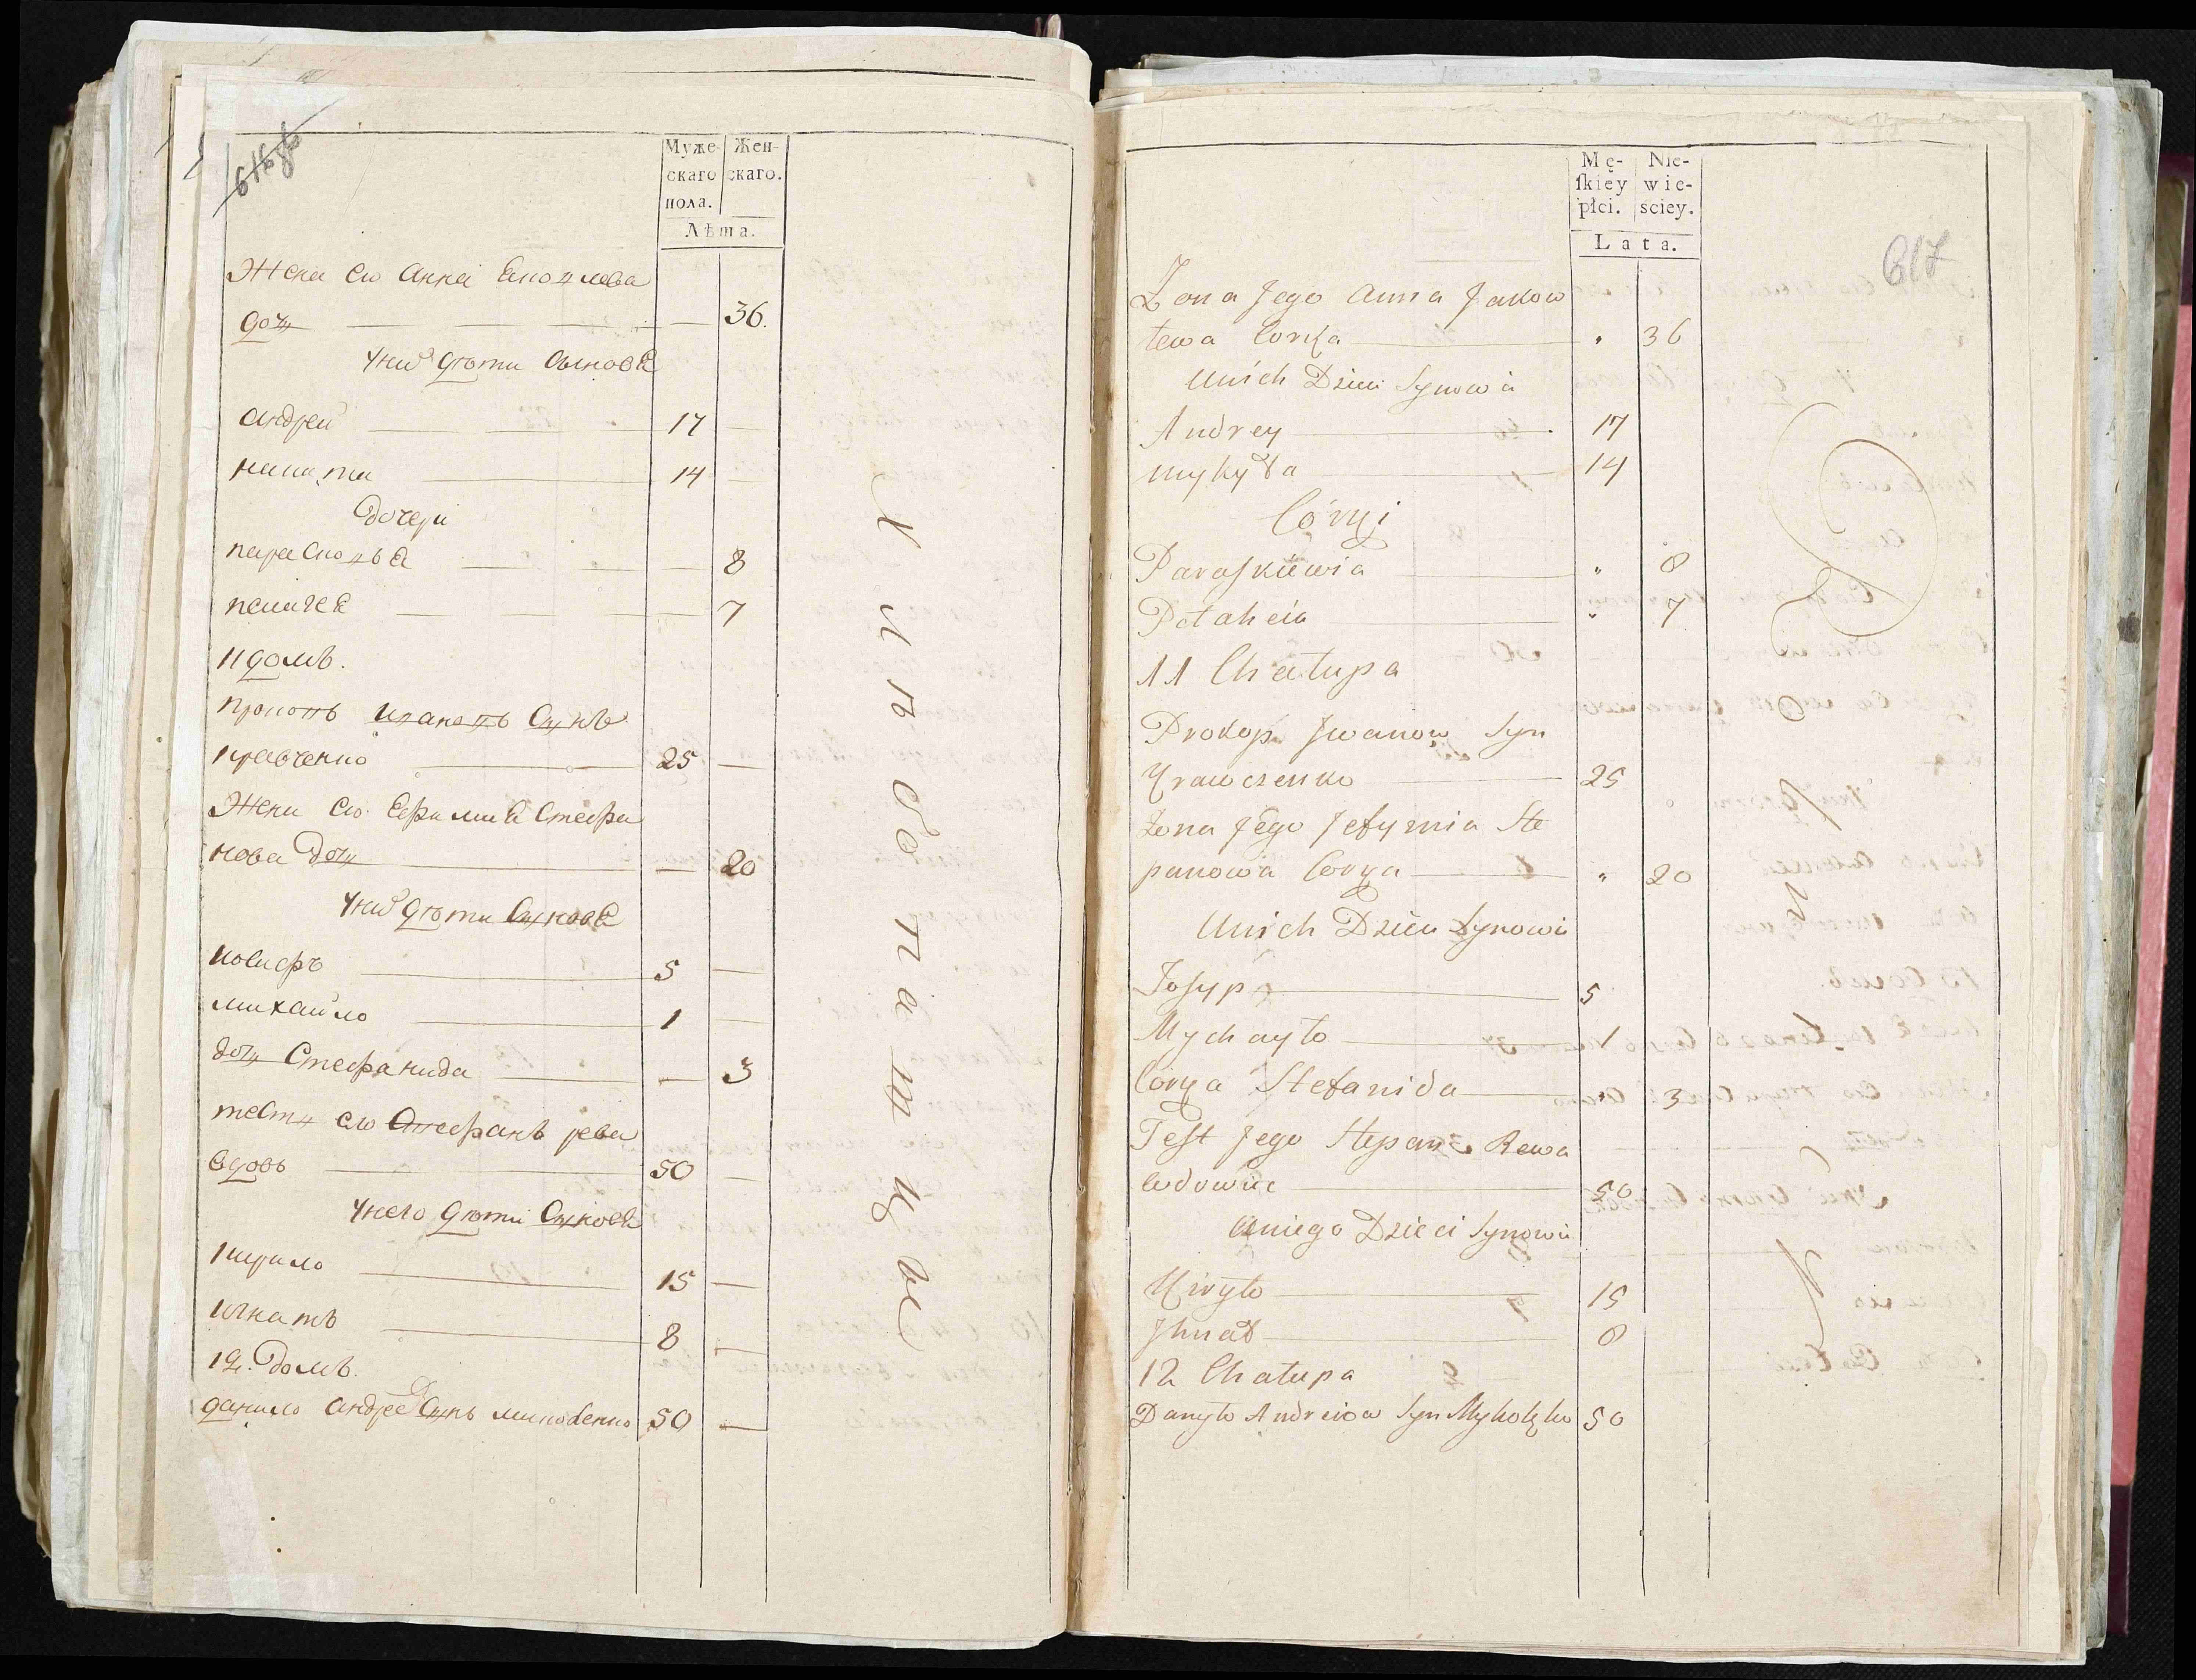 616 зв
Муже-
скаго
пола.
Жен-
скаго.
Лѣта.
Жена ево Анна Яковлева
дочь 36.
У них дѣти Сыновя
Андрей 17
Никита 14
Дочери
Парасковья 8
Пелагея 7
11 домъ.
Прокопъ Ивановъ Сынъ
Кравченко 25
Жена ево Ефимия Стефа
нова Дочь 20
У них дѣти Сыновя
Иосифъ 5
Михайло 1
дочь Стефанида 3
тесть ево Стефанъ рева
вдовъ 50
У него дѣти Сыновя
Кирило 15
Игнатъ 8
12. Домъ.
Данило Андреевъ Сынъ 50
Хлѣбопашцы
Mę-
ſkiey
płci.
Nie-
wie-
sciey.
Lata.
617
Zona Jego Anna Jakow
lewa Corka 36
Unich Dzieci Synowie
Andrey 17
Mykyta 14
Córki
Paraſkiewia 8
Pelaheia 7
11 Chałupa
Prokop Jwanow Syn
Krawczenko 25
Zona Jego Jefymia Ste
panowa Corka 20
Unich Dzieci Synowie
Josyp 5
Mychayło 1
Córka Stefanida 3
Teſt Jego Stepan Rewa
wdowiec 50
Uniego Dzieci Synowie
Kiryło 15
Jhnat 8
12 Chałupa
Danyło Andreiow Syn 50